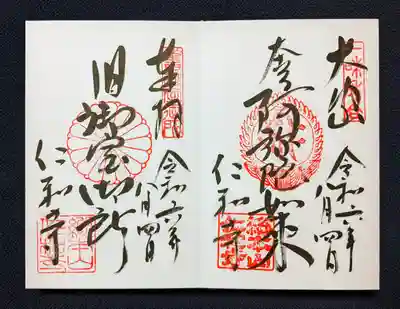 大内山
令和六年
八月四日
阿弥陀如来
仁和寺
令和六年
八月四日
旧御室御所
仁和寺